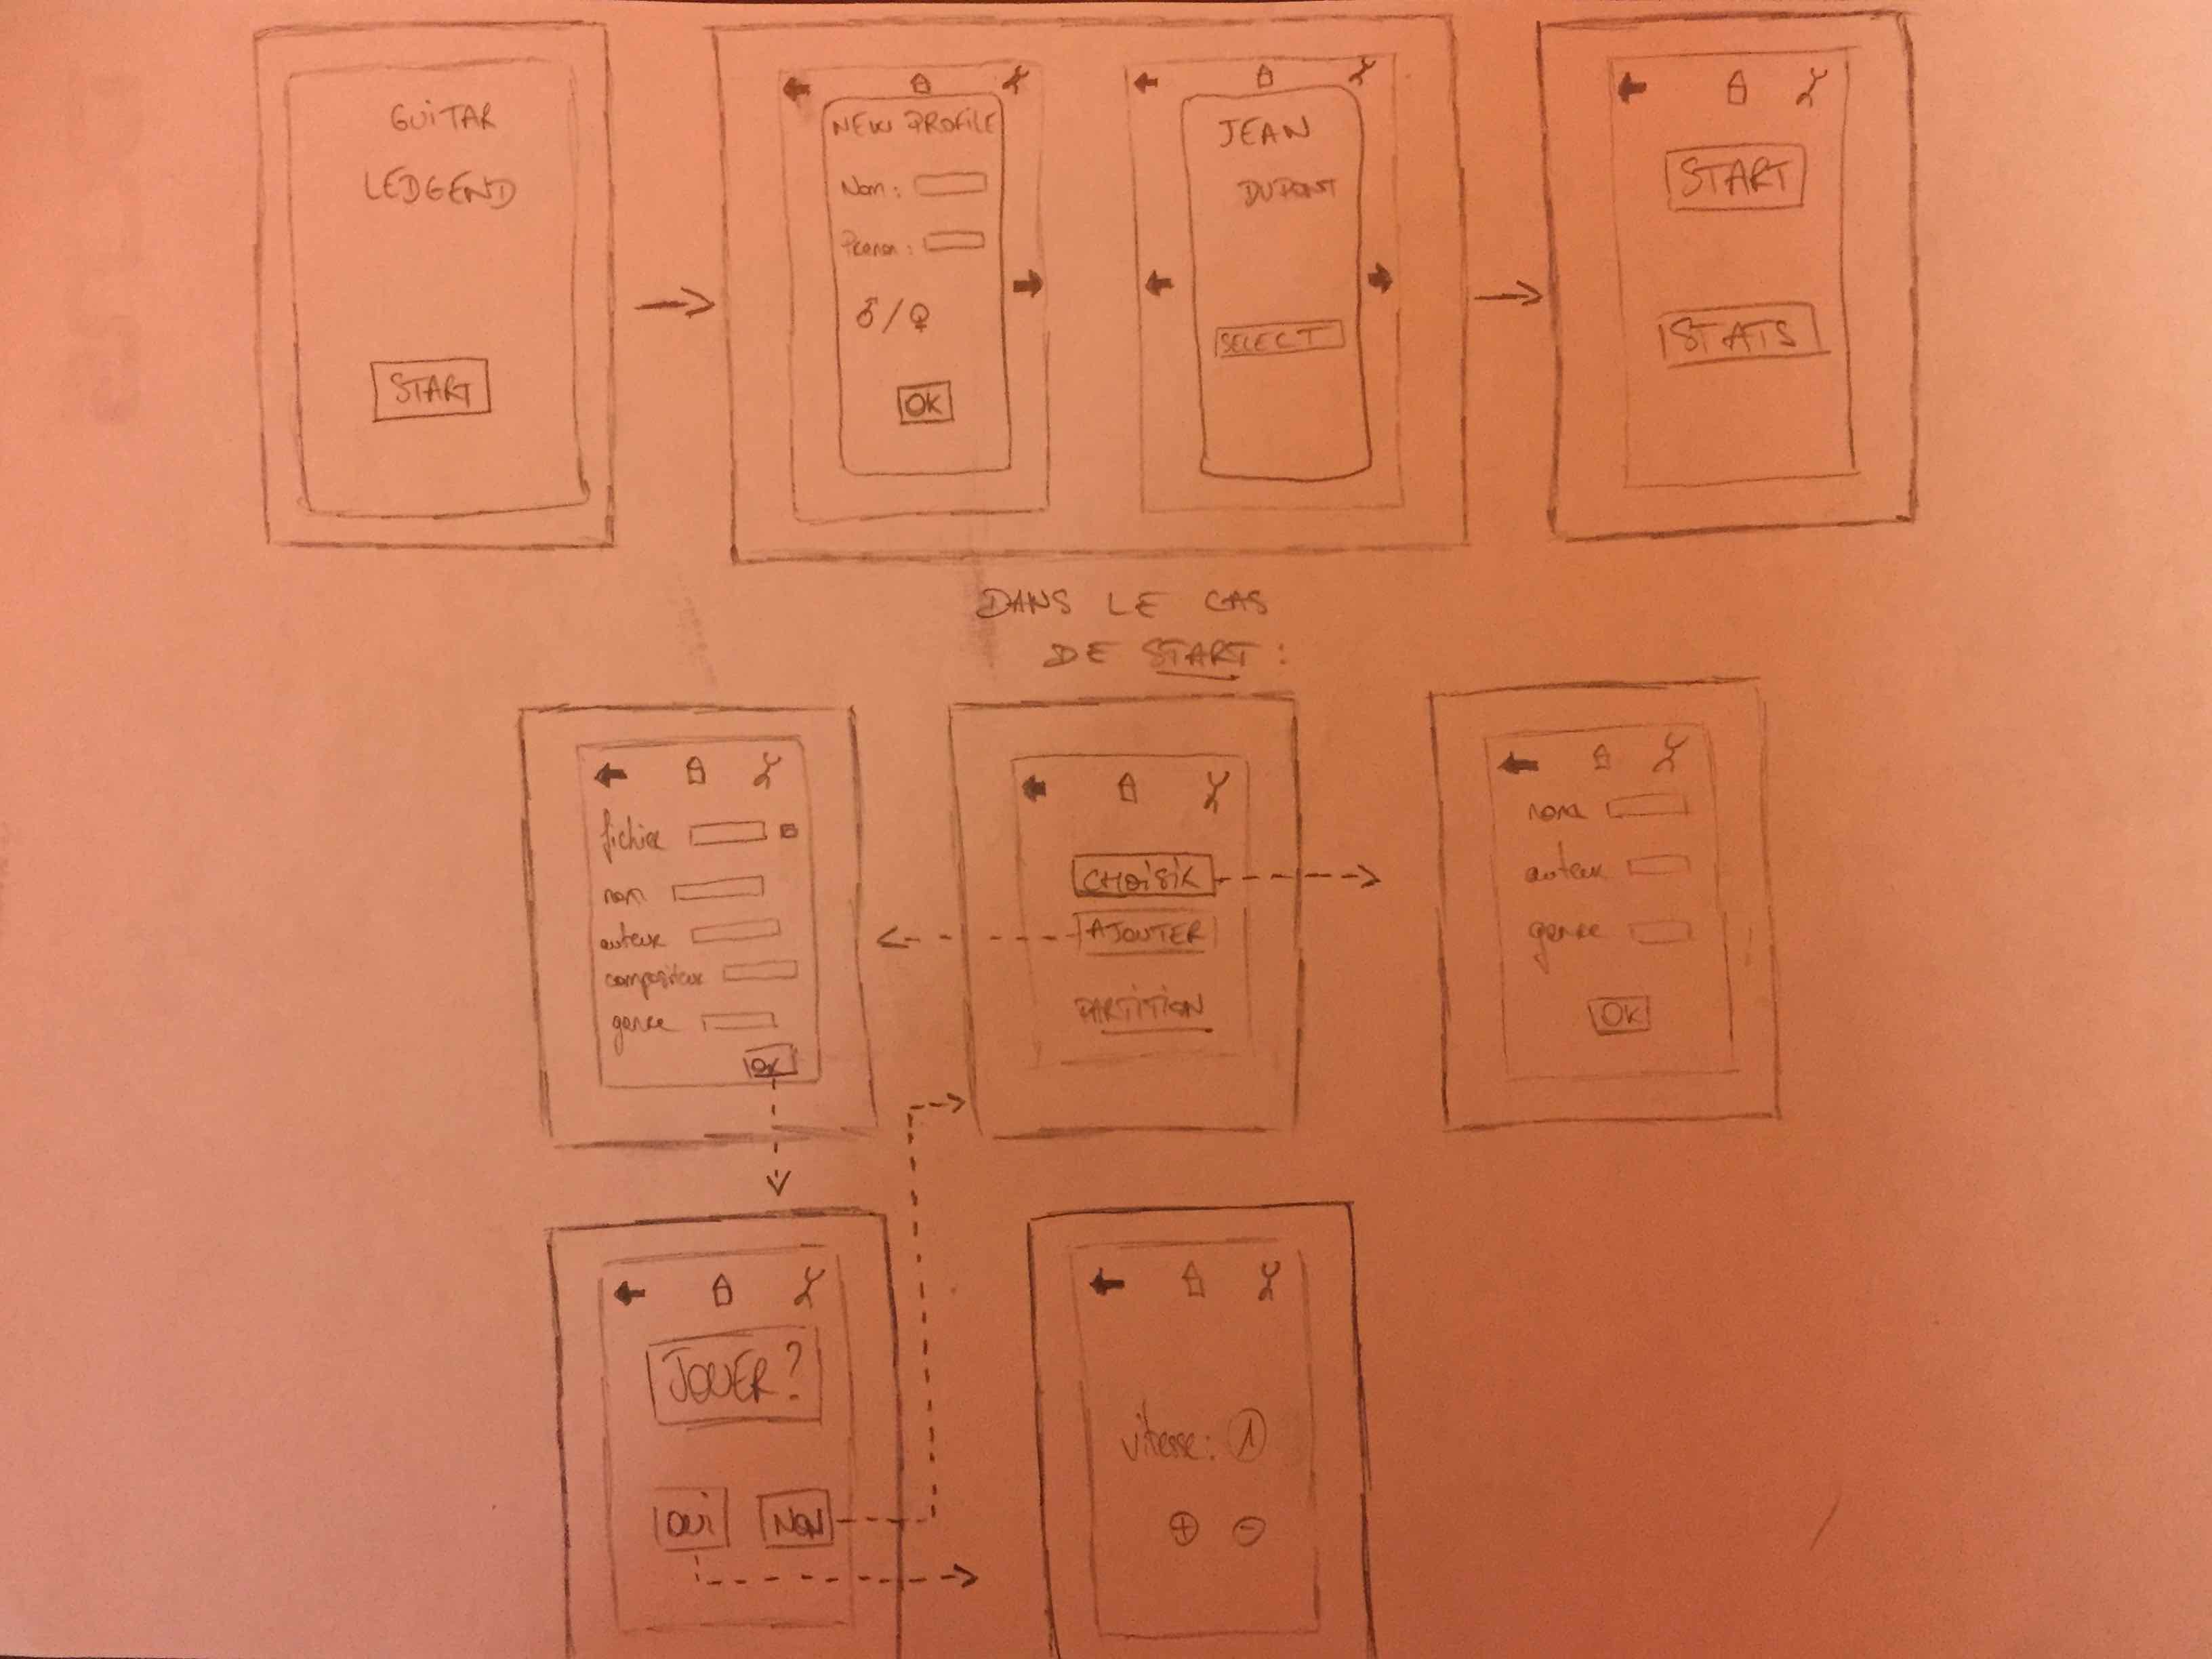 GUITAR
LEDGEND
START
NEW PROFILE
Nom :
Prenom :
♂ / ♀
OK
JEAN
DUPONT
SELECT
START
STATS
DANS LE CAS
DE START :
fichier
nom
auteur
compositeur
genre
OK
CHOISIR
AJOUTER
PARTITION
nom
auteur
genre
OK
JOUER ?
OUI NON
vitesse : 1
+ -